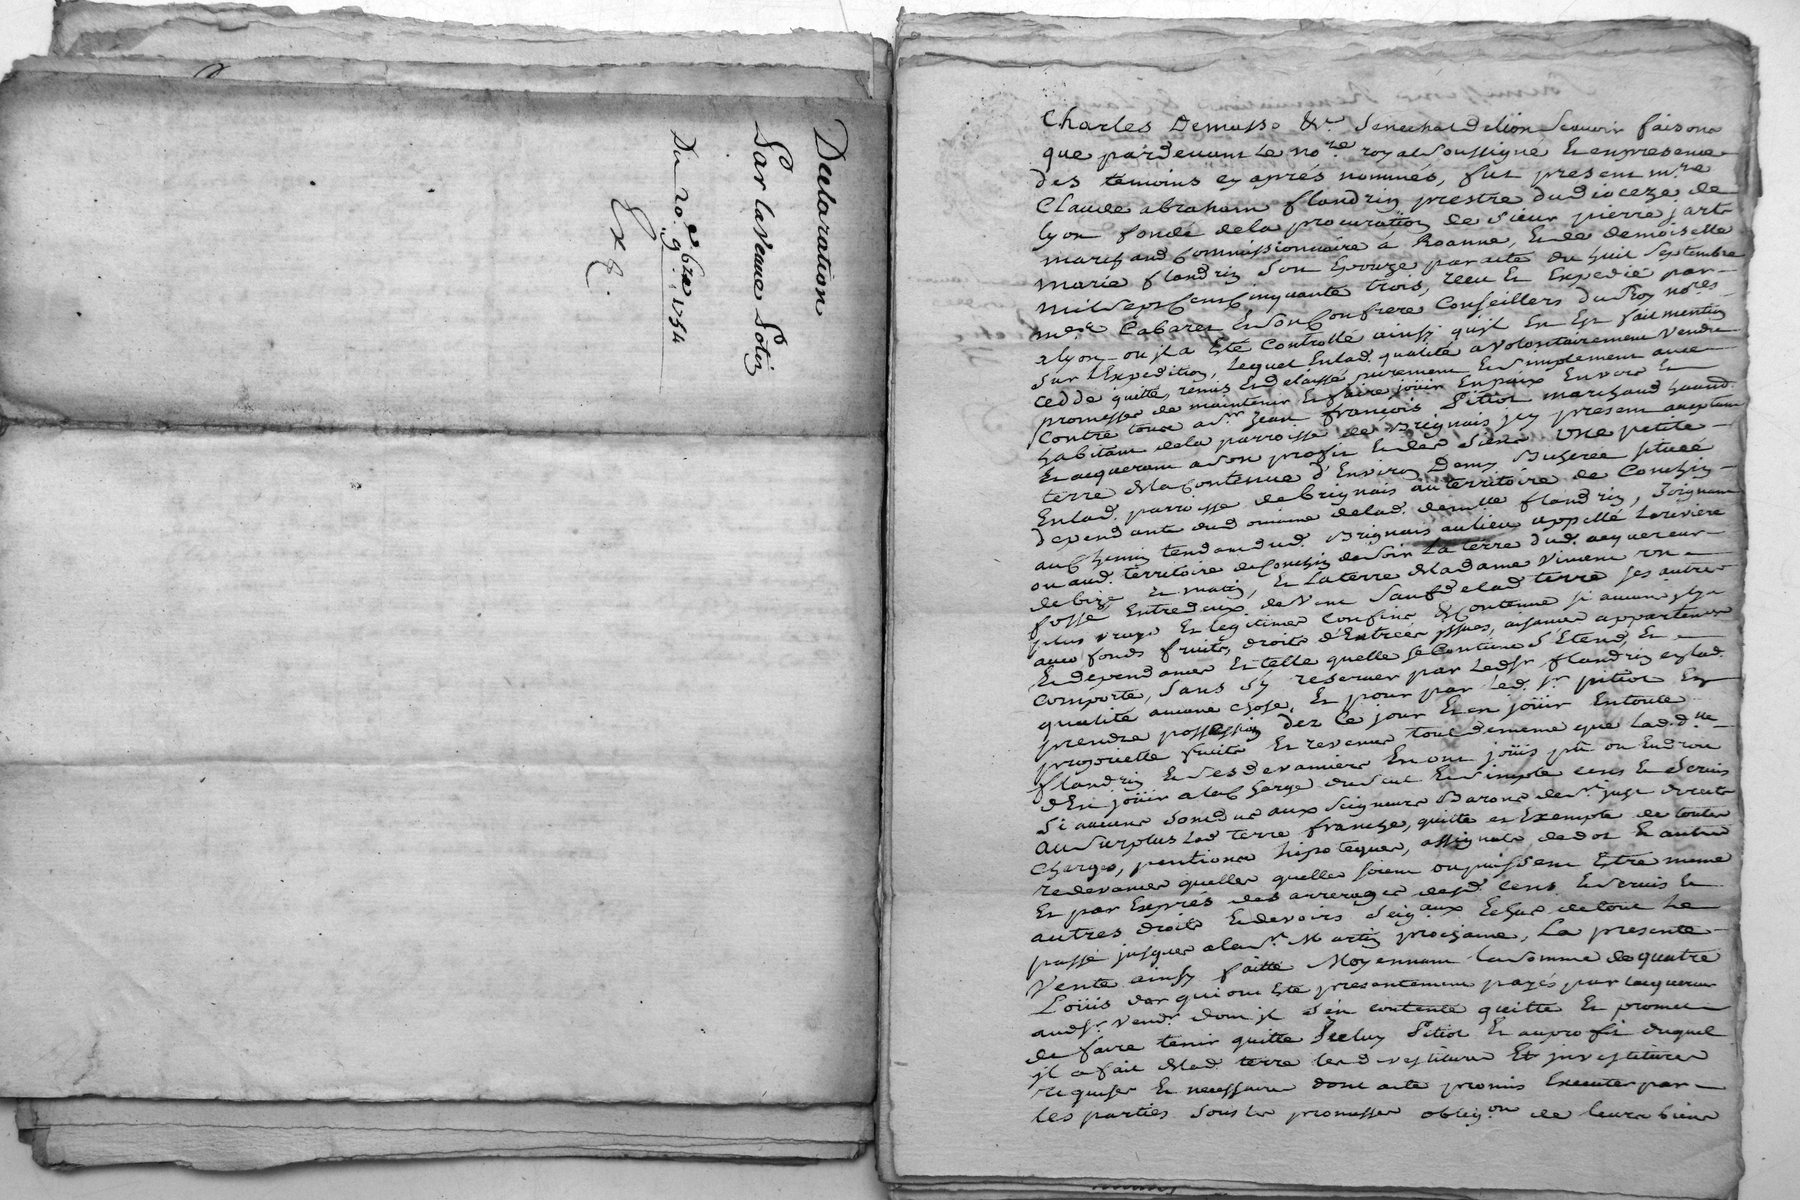 Declaration
Par la veuve Potin
Du 20e 9bre 1754
Exp.
Charles Demasso &c. Senechal de lion Scavoir faisons
que pardevant le nore royal Soussigné Et en presence
des temoins cy après nommés, fut present mre
Claude abraham flandrin prestre du dioceze de
lyon fondé de la procuration de Sieur pierre jart
marchand Commissionnaire a Roanne, Et de demoiselle
marie flandrin Son Epouze par acte du huit Septembre
mil Sept Cent Cinquante trois, receu Et Expedié par
me Cabaret Et Son Confrere Conseillers du Roy nores
a lyon ou il a Eté Controllé ainsi qu'il En Est fait mention
Sur l'Expedition, Lequel En lad. qualité a volontairement vendu
ceddé quitté, remis Et delaissé purement Et Simplement avec
promesse de maintenir Et faire jöüir En paix Envers Et
Contre tous a Sr Jean françois Pitiot marchand
habitant de la parroisse de Brignais icy present acceptant
Et acquerant a Son profit Et des Siens une petite
terre de la Contenue d'Environ Demy Bicheree scituée
En lad. parroisse de brignais au territoire de Conchin
dependante du domaine de lad. demlle flandrin, Joignant
au Chemin tendant dud. Brignais au lieu appellé La riviere
ou aud. territoire de Conchin de soir La terre dud. acquereur
de bize Et matin, Et La terre de Madame Vivent un
fossé Entre deux de Vent Sauf de lad. terre ses autres
plus vrays Et legitimes Confins & Contenue si aucuns il y a
avec fonds fruits, droits d'Entrées issues, aisances appartenances
Et dependances Et telle quelle se Contient S'Etend Et
Comporte, Sans S'y reserver par Ledsr flandrin en lad.
qualité aucune chose, Et pour par led. Sr pitiot En
prendre possession dez Ce jour Et en jöüir En toute
proprieté fruits Et revenus tout de meme que Lad. dlle
flandrin Et Ses devanciers En ont jöüis pu ou En droit
d'En jöüir a la Charge du Seul Et Simple cens Et Servis
Si aucuns Sont dus aux Seigneurs Barons de St just directe
au Surplus lad. terre franche, quitte et Exempte de toutes
charges, pentions hipoteques, assignats de dot Et autres
redevances quelles quelles soient ou puissent Estre meme
Et par Expres des arrerages desd. cens Et Servis Et
autres droits Et devoirs Seigaux Echus de tout Le
passé jusques a la St Martin prochaine, La presente
Vente ainsy faitte Moyennant la Somme de quatre
Loüis d'or qui ont Eté presentement payés par lacquereur
audsr. vendr. dont il s'en contente quitte Et promet
de faire tenir quitte Iceluy Pitiot Et au profit duquel
il a fait de lad. terre les devestitures Et investitures
requises Et necessaires dont acte promis Executer par
les parties Sous les promesses obligon de leurs biens